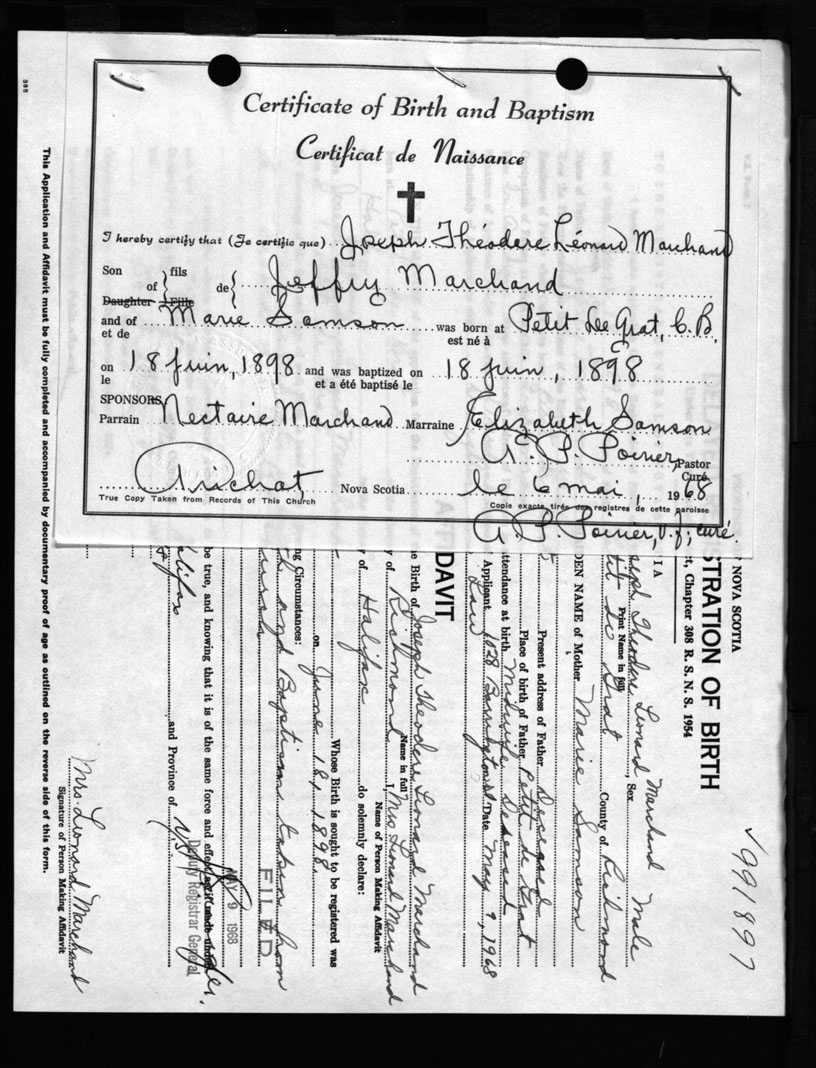 Certificate of Birth and Baptism
Certificat de Naissance
I hereby certify that (Je certifie que) Joseph Théodere Léonard Marchand
Son of fils de Jeffry Marchand
Daughter Fille
and of Marie Samson was born at Petit De Grat, C. B.
et de est né à
on 18 juin, 1898 and was baptized on 18 juin, 1898
le et a été baptisé le
SPONSORS
Parrain Nectaire Marchand Marraine Elizabeth Samson
A. P. Poirier, Pastor
Curé
Arichat, Nova Scotia le 6 mai, 1968
True Copy Taken from Records of This Church Copie exacte tirée des registres de cette paroisse
A. P. Poirier, curé.
NOVA SCOTIA
STRATION OF BIRTH
Chapter 308 R. S. N. S. 1954
Joseph Theodere Leonard Marchand Sex Male
Print Name in full
Petit De Grat County of Richmond
DEN NAME of Mother Marie Samson
Present address of Father Deceased
Place of birth of Father Petit de Grat
attendance at birth Midwife Deceased
Applicant 1028 Date May 9, 1968
DAVIT
Birth of Joseph Theodere Leonard Marchand
Name in full
y of Richmond I, Mrs Leonard Marchand
Name of Person Making Affidavit
y of Halifax do solemnly declare:
Whose Birth is sought to be registered was
on June 18, 1898.
ng Circumstances:
and Baptism taken from
church
FILED
MAY 9 1968
Deputy Registrar General
be true, and knowing that it is of the same force and effect
Halifax and Province of N.S.
Mrs. Leonard Marchand
Signature of Person Making Affidavit
This Application and Affidavit must be fully completed and accompanied by documentary proof of age as outlined on the reverse side of this form.
991897